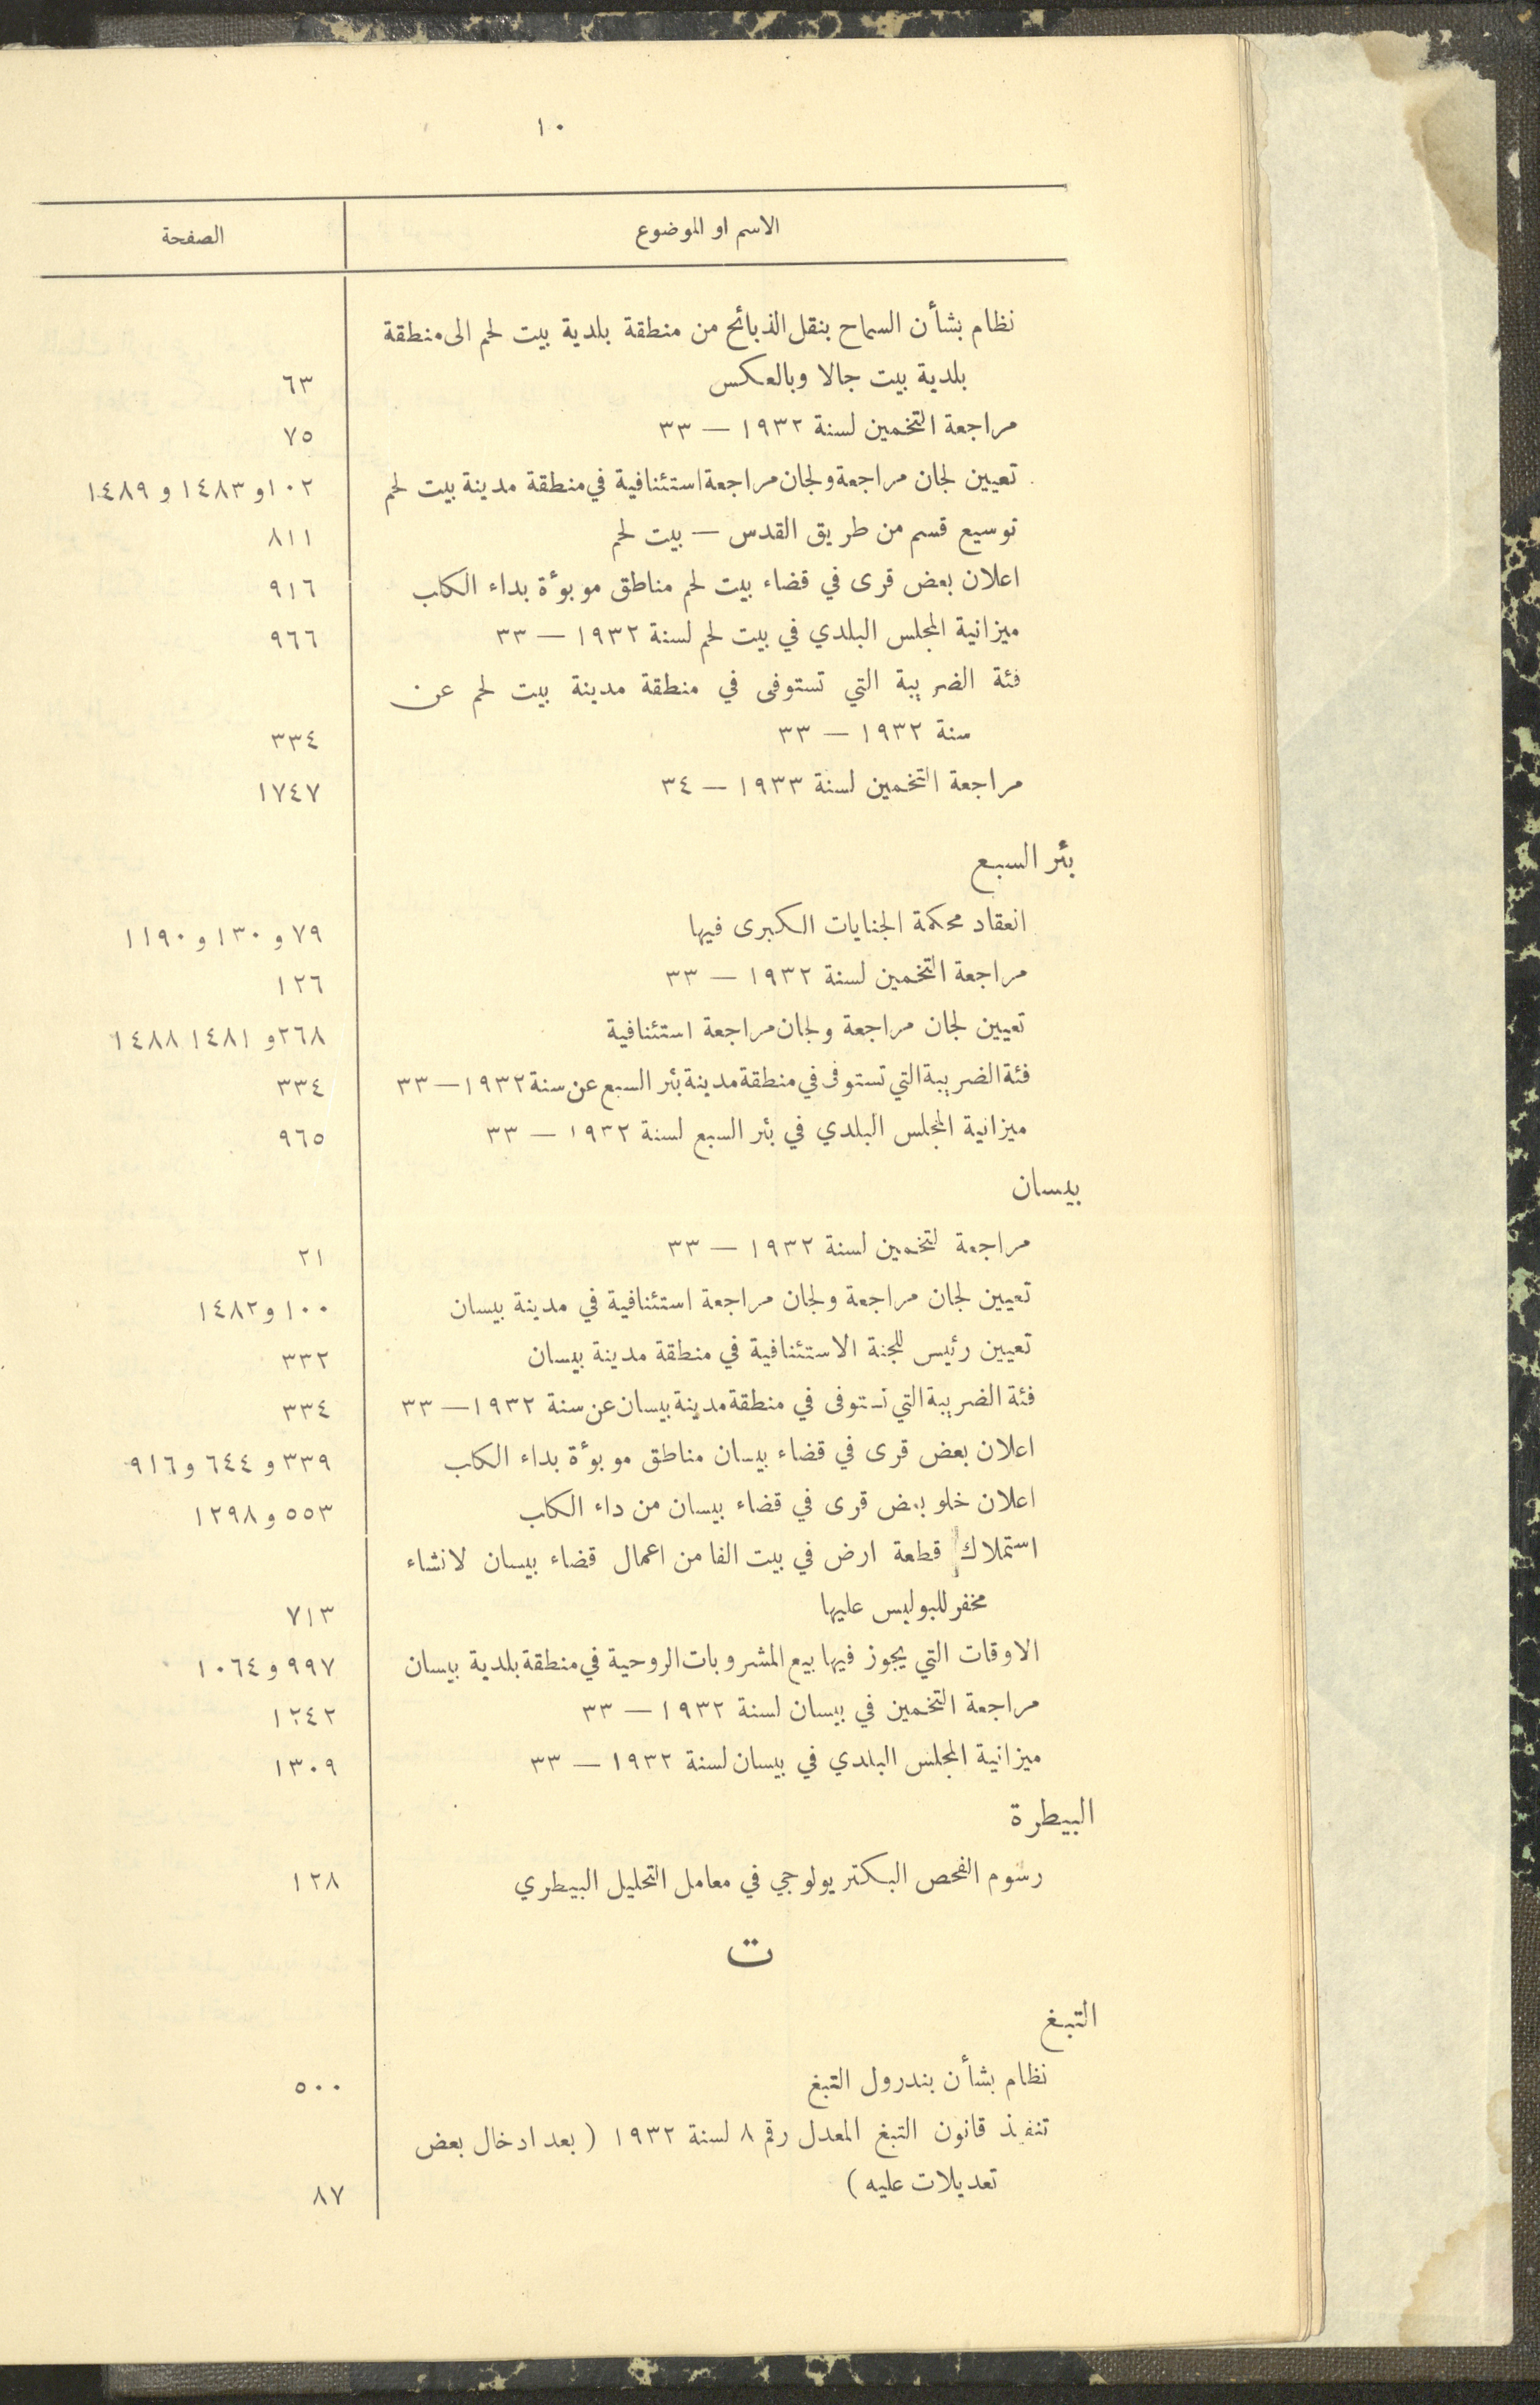 ١٠
الاسم او الموضوع الصفحة
نظام بشأن السماح بنقل الذبائح من منطقة بلدية بيت لحم الى منطقة
بلدية بيت جالا وبالعكس ٦٣
مراجعة التخمين لسنة ١٩٣٢ — ٣٣ ٧٥
تعيين لجان مراجعة ولجان مراجعة استئنافية في منطقة مدينة بيت لحم ١٠٢ و ١٤٨٣ و ١٤٨٩
توسيع قسم من طريق القدس — بيت لحم ٨١١
اعلان بعض قرى في قضاء بيت لحم مناطق موبوأة بداء الكلب ٩١٦
ميزانية المجلس البلدي في بيت لحم لسنة ١٩٣٢ — ٣٣ ٩٦٦
فئة الضريبة التي تستوفى في منطقة مدينة بيت لحم عن
سنة ١٩٣٢ — ٣٣ ٣٣٤
مراجعة التخمين لسنة ١٩٣٣ — ٣٤ ١٧٤٧
بئر السبع
انعقاد محكمة الجنايات الكبرى فيها ٧٩ و ١٣٠ و ١١٩٠
مراجعة التخمين لسنة ١٩٣٢ — ٣٣ ١٢٦
تعيين لجان مراجعة ولجان مراجعة استئنافية ٢٦٨ و ١٤٨١ ١٤٨٨
فئة الضريبة التي تستوفى في منطقة مدينة بئر السبع عن سنة ١٩٣٢ — ٣٣ ٣٣٤
ميزانية المجلس البلدي في بئر السبع لسنة ١٩٣٢ — ٣٣ ٩٦٥
بيسان
مراجعة لتخمين لسنة ١٩٣٢ — ٣٣ ٢١
تعيين لجان مراجعة ولجان مراجعة استئنافية في مدينة بيسان ١٠٠ و ١٤٨٢
تعيين رئيس للجنة الاستئنافية في منطقة مدينة بيسان ٣٣٢
فئة الضريبة التي تستوفى في منطقة مدينة بيسان عن سنة ١٩٣٢ — ٣٣ ٣٣٤
اعلان بعض قرى في قضاء بيسان مناطق موبوأة بداء الكلب ٣٣٩ و ٦٤٤ و ٩١٦
اعلان خلو بعض قرى في قضاء بيسان من داء الكلب ٥٥٣ و ١٢٩٨
استملاك قطعة ارض في بيت الفا من اعمال قضاء بيسان لانشاء
مخفر للبوليس عليها ٧١٣
الاوقات التي يجوز فيها بيع المشروبات الروحية في منطقة بلدية بيسان ٩٩٧ و ١٠٦٤
مراجعة التخمين في بيسان لسنة ١٩٣٢ — ٣٣ ١٢٤٢
ميزانية المجلس البلدي في بيسان لسنة ١٩٣٢ — ٣٣ ١٣٠٩
البيطرة
رسوم الفحص البكتريولوجي في معامل التحليل البيطري ١٢٨
ت
التبغ
نظام بشأن بندرول التبغ ٥٠٠
تنفيذ قانون التبغ المعدل رقم ٨ لسنة ١٩٣٢ ( بعد ادخال بعض
تعديلات عليه ) ٨٧